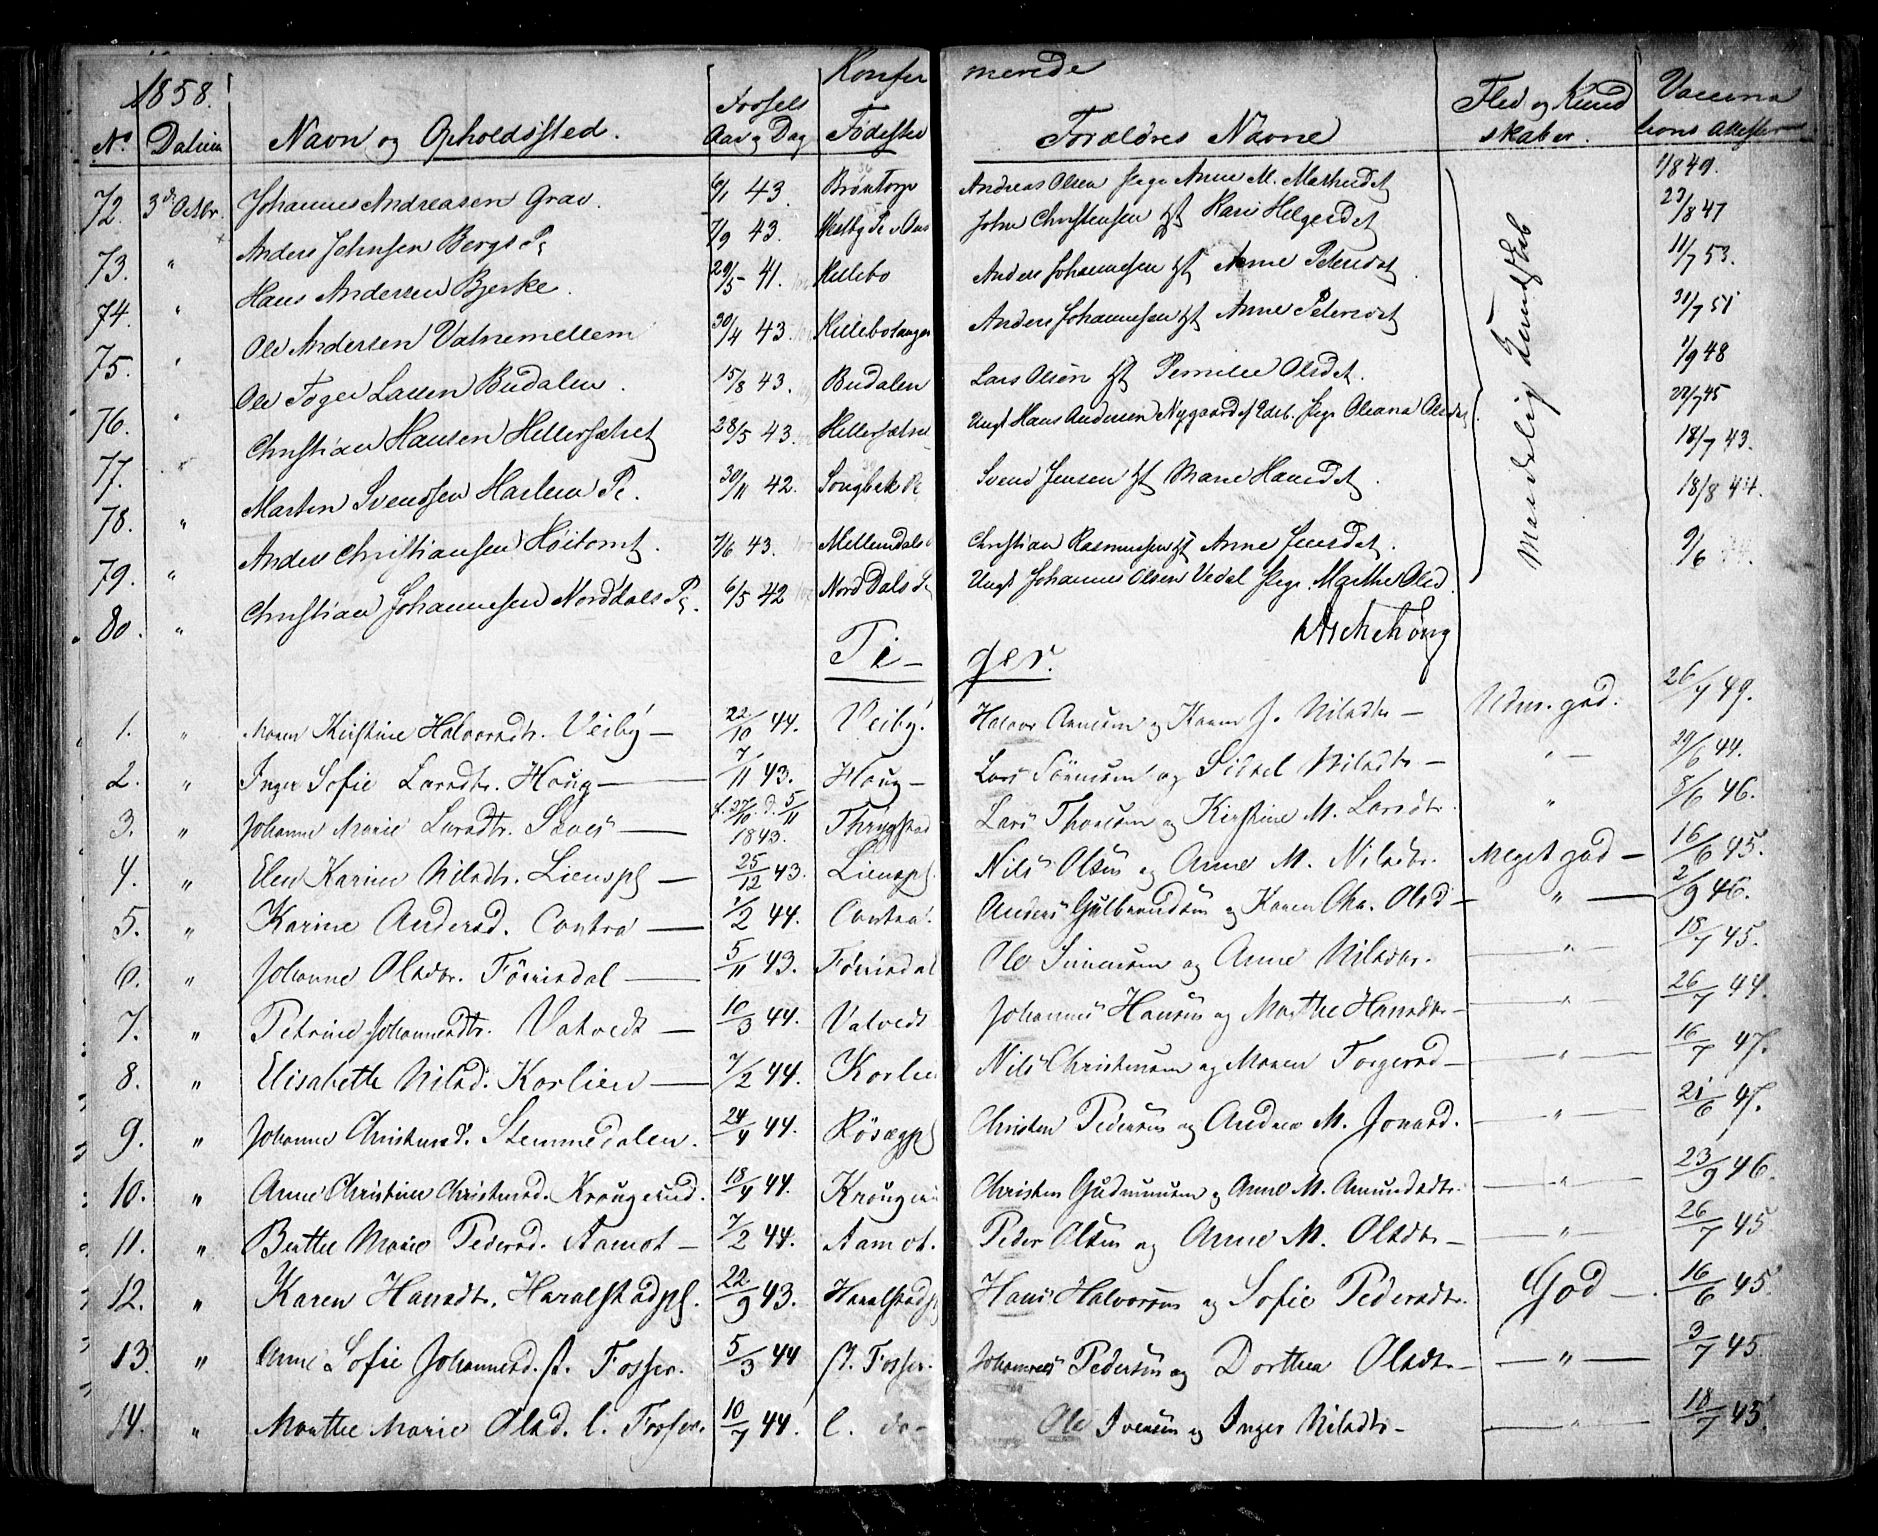 1858. Konfir merede
No Datum Navn og Opholdssted. Fødsels Aar og Dag Fødested Forældres Navne Flid og Kundskaber. Vaccinations Attester
72. 3die Octbr. Johannes Andreasen Grav. 6/1 43. Brøntorp Andreas Olsen Pige Anne M. Mathisdet 1849.
73. " Anders Johnsen Bergs Pl 7/9 43. Vestby John Christensen Hst Kari Helgesdet 23/8 47
74. " Hans Andersen Bjerke. 29/5 41. Killebo Anders Johannesen Hst Anne Petersdet 11/7 53.
75. " Ole Andersen Vatnemellem 30/4 43. Killebotangen Anders Johannesen Hst Anne Petersdet 31/7 51
76. " Ole Larsen Budalen. 15/8 43. Budalen Lars Olsen Hst Pernille Olsdet. 1/9 48
77. " Christian Hansen Hellersætret 28/5 43. Hellersætret Ungk Hans Andersen Nygaard Pige Oleana Olsdet 22/7 45
78. " Marten Svendsen Haslem Pl. 30/11 42. Songbek Pl Svend Jensen Hst Marie Hansdet. 18/7 43.
79. " Anders Christiansen Høitomt. 7/6 43. Mellemdals Christian Rasmussen Hst Anne Jensdet. 18/8 44.
80. " Christian Johannesen Norddals Pl. 6/5 42 Norddals Pl Ungk Johannes Olsen Vedal Pige Marthe Olsd. 9/6
Mandelig Kundskab
Aschehoug
Pi- ger.
1. " Maren Kirstine Halvorsdtr. Veiby — 22/10 44. Veiby. Halvor Arnesen og Karen J. Nilsdtr — Udm. god. 26/7 49.
2. " Inger Sofie Larsdtr. Houg — 7/11 43. Houg — Lars Sørensen og Sidsel Nilsdtr — " — 29/6 44.
3. " Johanne Marie Larsdtr. — f. 27/10. d. 5/11 1843. Thrygstad Lars Thoresen og Kirstine M. Larsdtr. " 8/6 46.
4. " Elen Karine Nilsdtr. Lienspl — 25/12 43. Lienspl. Nils Olsen og Anne M. Nilsdtr. Meget god — 16/6 45.
5. " Karine Andersd. Contra — 1/2 44. Contra. Anders Gulbrandsen og Karen Chr. Olsd — " — 2/9 46.
6. " Johanne Olsdtr. Førrisdal — 5/11 43. Førrisdal Ole Simensen og Anne Nilsdtr. — " — 18/7 45.
7. " Petrine Johannesdtr. Vatvedt — 10/3 44. Vatvedt Johannes Hansen og Marthe Hansdtr — — " — 26/7 44.
8. " Elisabeth Nilsd. Korlien — 7/2 44. Korlie Nils Christensen og Maren Torgersd — — " — 16/7 47.
9. " Johanne Christensd. Stemmedalen. 24/4 44. Røsægpl Christen Pedersen og Andrea M. Jonasd. — " — 21/6 47.
10. " Anne Christine Christensd. Krougsrud. 18/4 44. Krougsru Christen Gudmunsen og Anne M. Amundsdtr. — " — 23/9 46.
11. " Berthe Marie Pedersd. Aamot — 7/2 44. Aamot. Peder Olsen og Anne M. Olsdtr — — " — 26/7 45
12. " Karen Hansdtr. Haralstadpl. 22/9 43. Haralstadpl Hans Halvorsen og Sofie Pedersdtr. God — 16/6 45.
13. " Anne Sofie Johannesd. st. Fosser. 5/3 44 st. Fosser. Johannes Pedersen og Dorthea Olsdtr — — " — 3/7 45.
14. " Marthe Marie Olsd. l. Fosser. 10/7 44. l. do — Ole Iversen og Inger Nilsdtr — — " — 18/7 45.